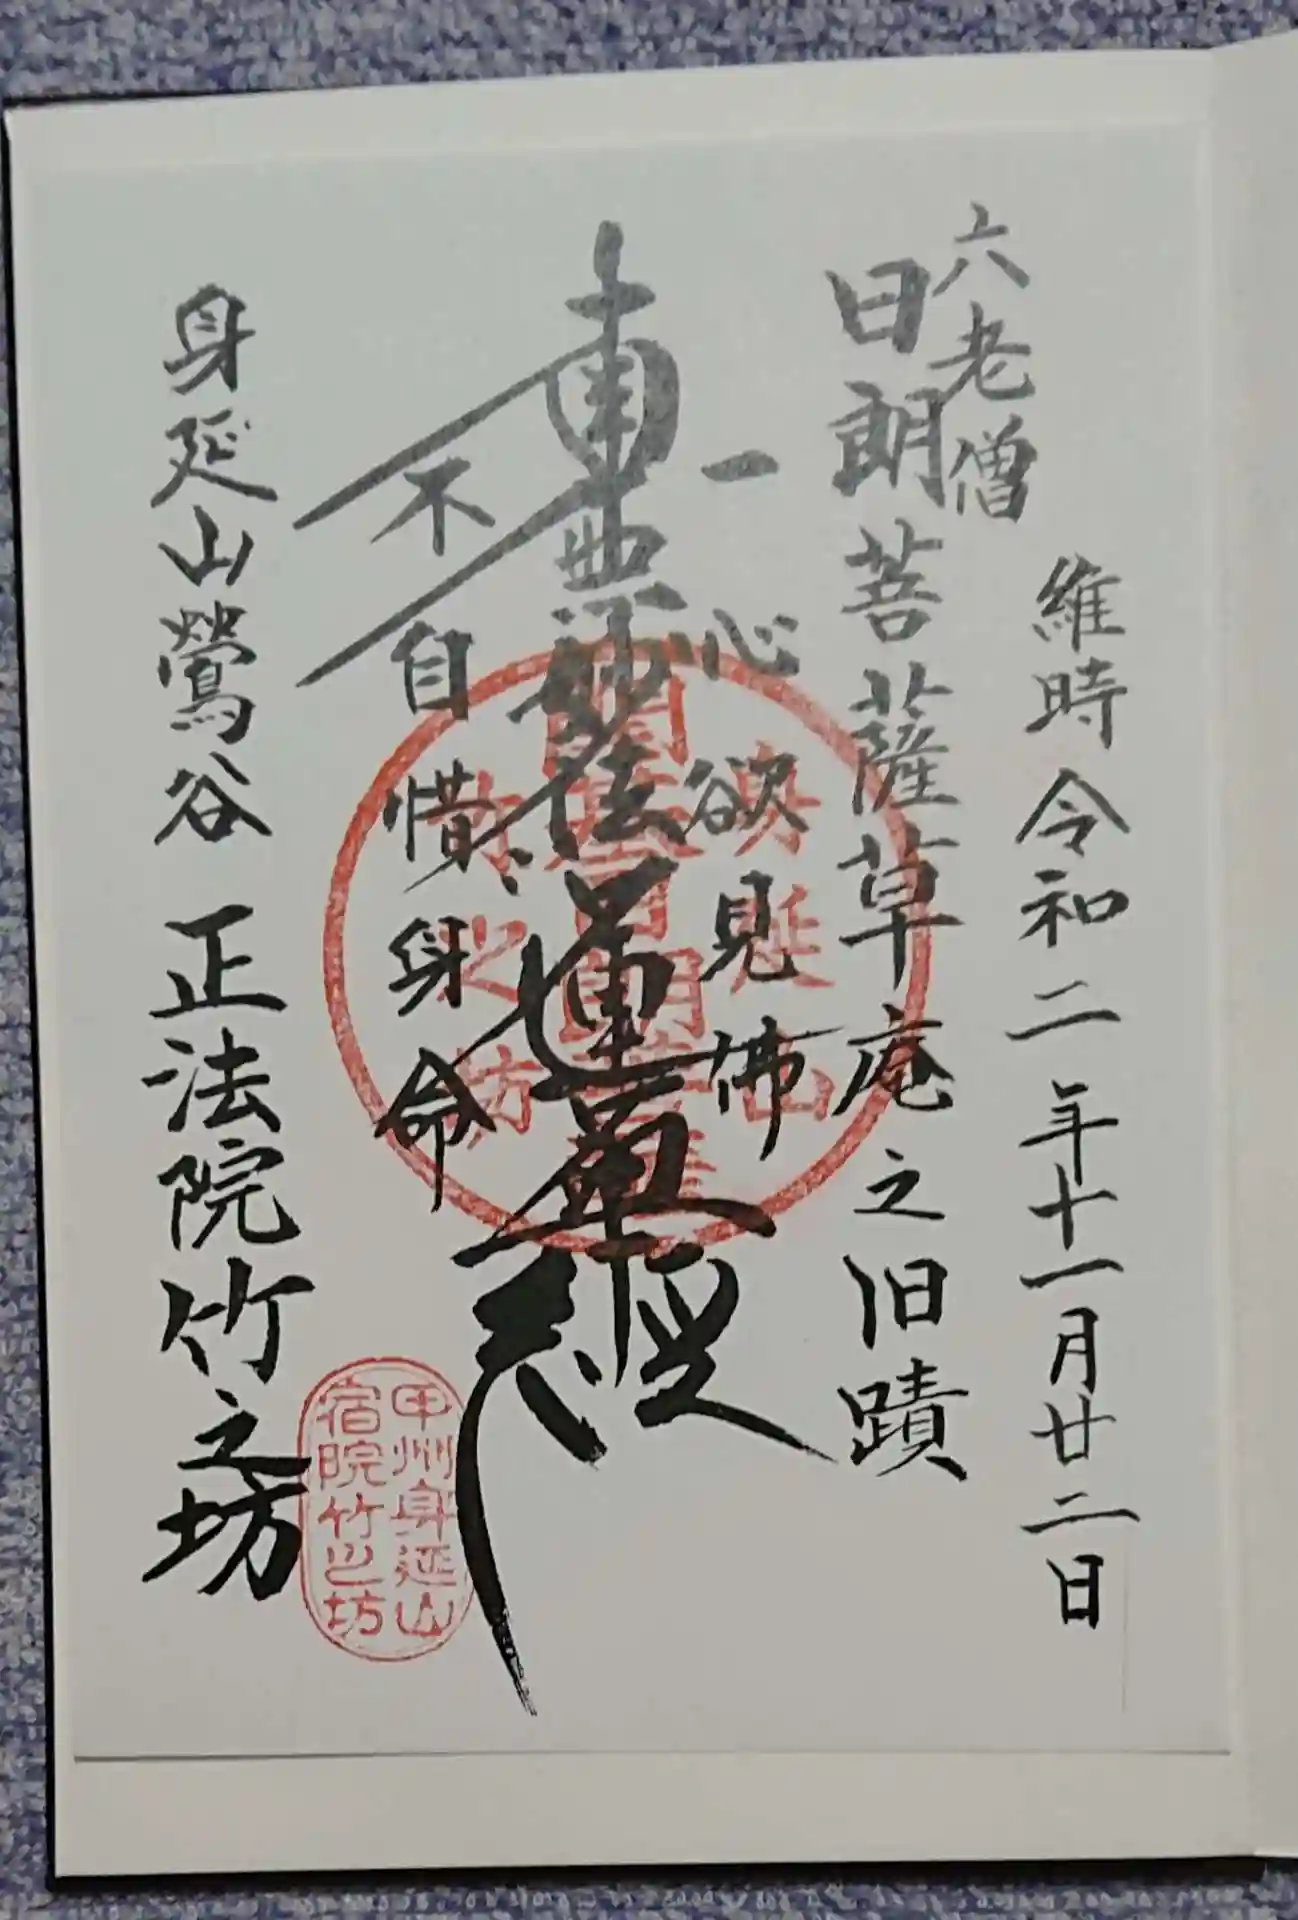 維時令和二年十一月廿二日
六老僧
日朗菩薩草庵之旧蹟
一心欲見佛
南無妙法蓮華経
不自惜身命
身延山鶯谷 正法院竹之坊
身延山
竹之坊
甲州身延山
宿院竹之坊